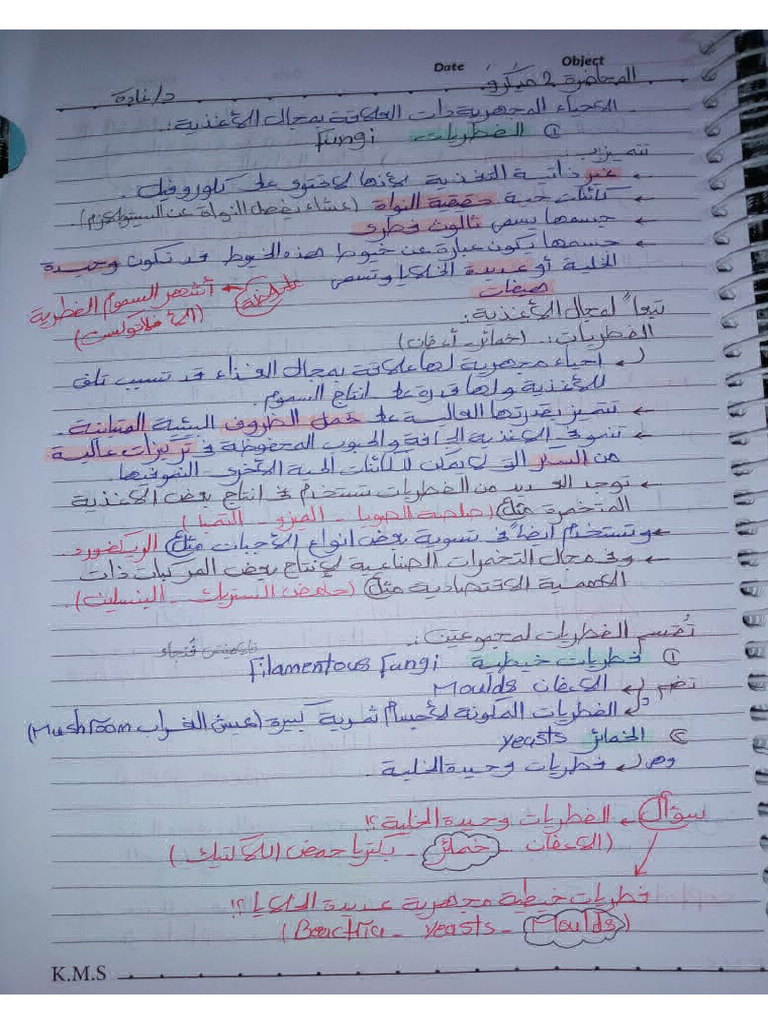 Date Object
المحاضرة 2 ميكرو د/غادة
الأحياء المجهرية ذات العلاقة بمجال الأغذية :.
① الفطريات Fungi
تتميز بـ:
← غير ذاتية التغذية لأنها لا تحتوي على كلوروفيل.
← كائنات حية حقيقية النواة (غشاء يفصل النواة عن السيتوبلازم)
← جسمها يسمى ثالوث فطري
← جسمها تكون عبارة عن خيوط هذه الخيوط قد تكون وحيدة
الخلية أو عديدة الخلايا وتسمى هيفات
ملاحظة ← أشهر السموم الفطرية
(الأفلاتوكسن)
تبعاً لمجال الأغذية:
الفطريات:. (خمائر - أعفان)
احياء مجهرية لها علاقة بمجال الغذاء قد تسبب تلف
للأغذية ولها قدرة على انتاج السموم.
← تتميز بقدرتها العالية على تحمل الظروف البيئية المتباينة.
← تنمو في الأغذية الجافة والحبوب المحفوظة في تركيزات عالية
من السكر التي لا يمكن للكائنات الحية الأخرى النمو فيها.
← توجد العديد من الفطريات تستخدم في انتاج بعض الأغذية
المتخمرة مثل (صلصة الصويا - الميزو - التمبا)
← وتستخدم ايضاً في تسوية بعض انواع الأجبان مثل الريكفورد
← وفي مجال التخمرات الصناعية لإنتاج بعض المركبات ذات
الأهمية الاقتصادية مثل (حامض الستريك - البنسلين).
تُقسم الفطريات لمجموعتين:.
① فطريات خيطية Filamentous Fungi
تضم ← الأعفان Moulds
← الفطريات المكونة لأجسام ثمرية كبيرة (عيش الغراب Mushroom)
② الخمائر yeasts
وهي ← فطريات وحيدة الخلية.
سؤال ← الفطريات وحيدة الخلية؟!
(الأعفان - خمائر - بكتريا حمض اللاكتيك)
فطريات خيطية مجهرية عديدة الخلايا؟!
(Beactria - yeasts - Moulds)
K.M.S